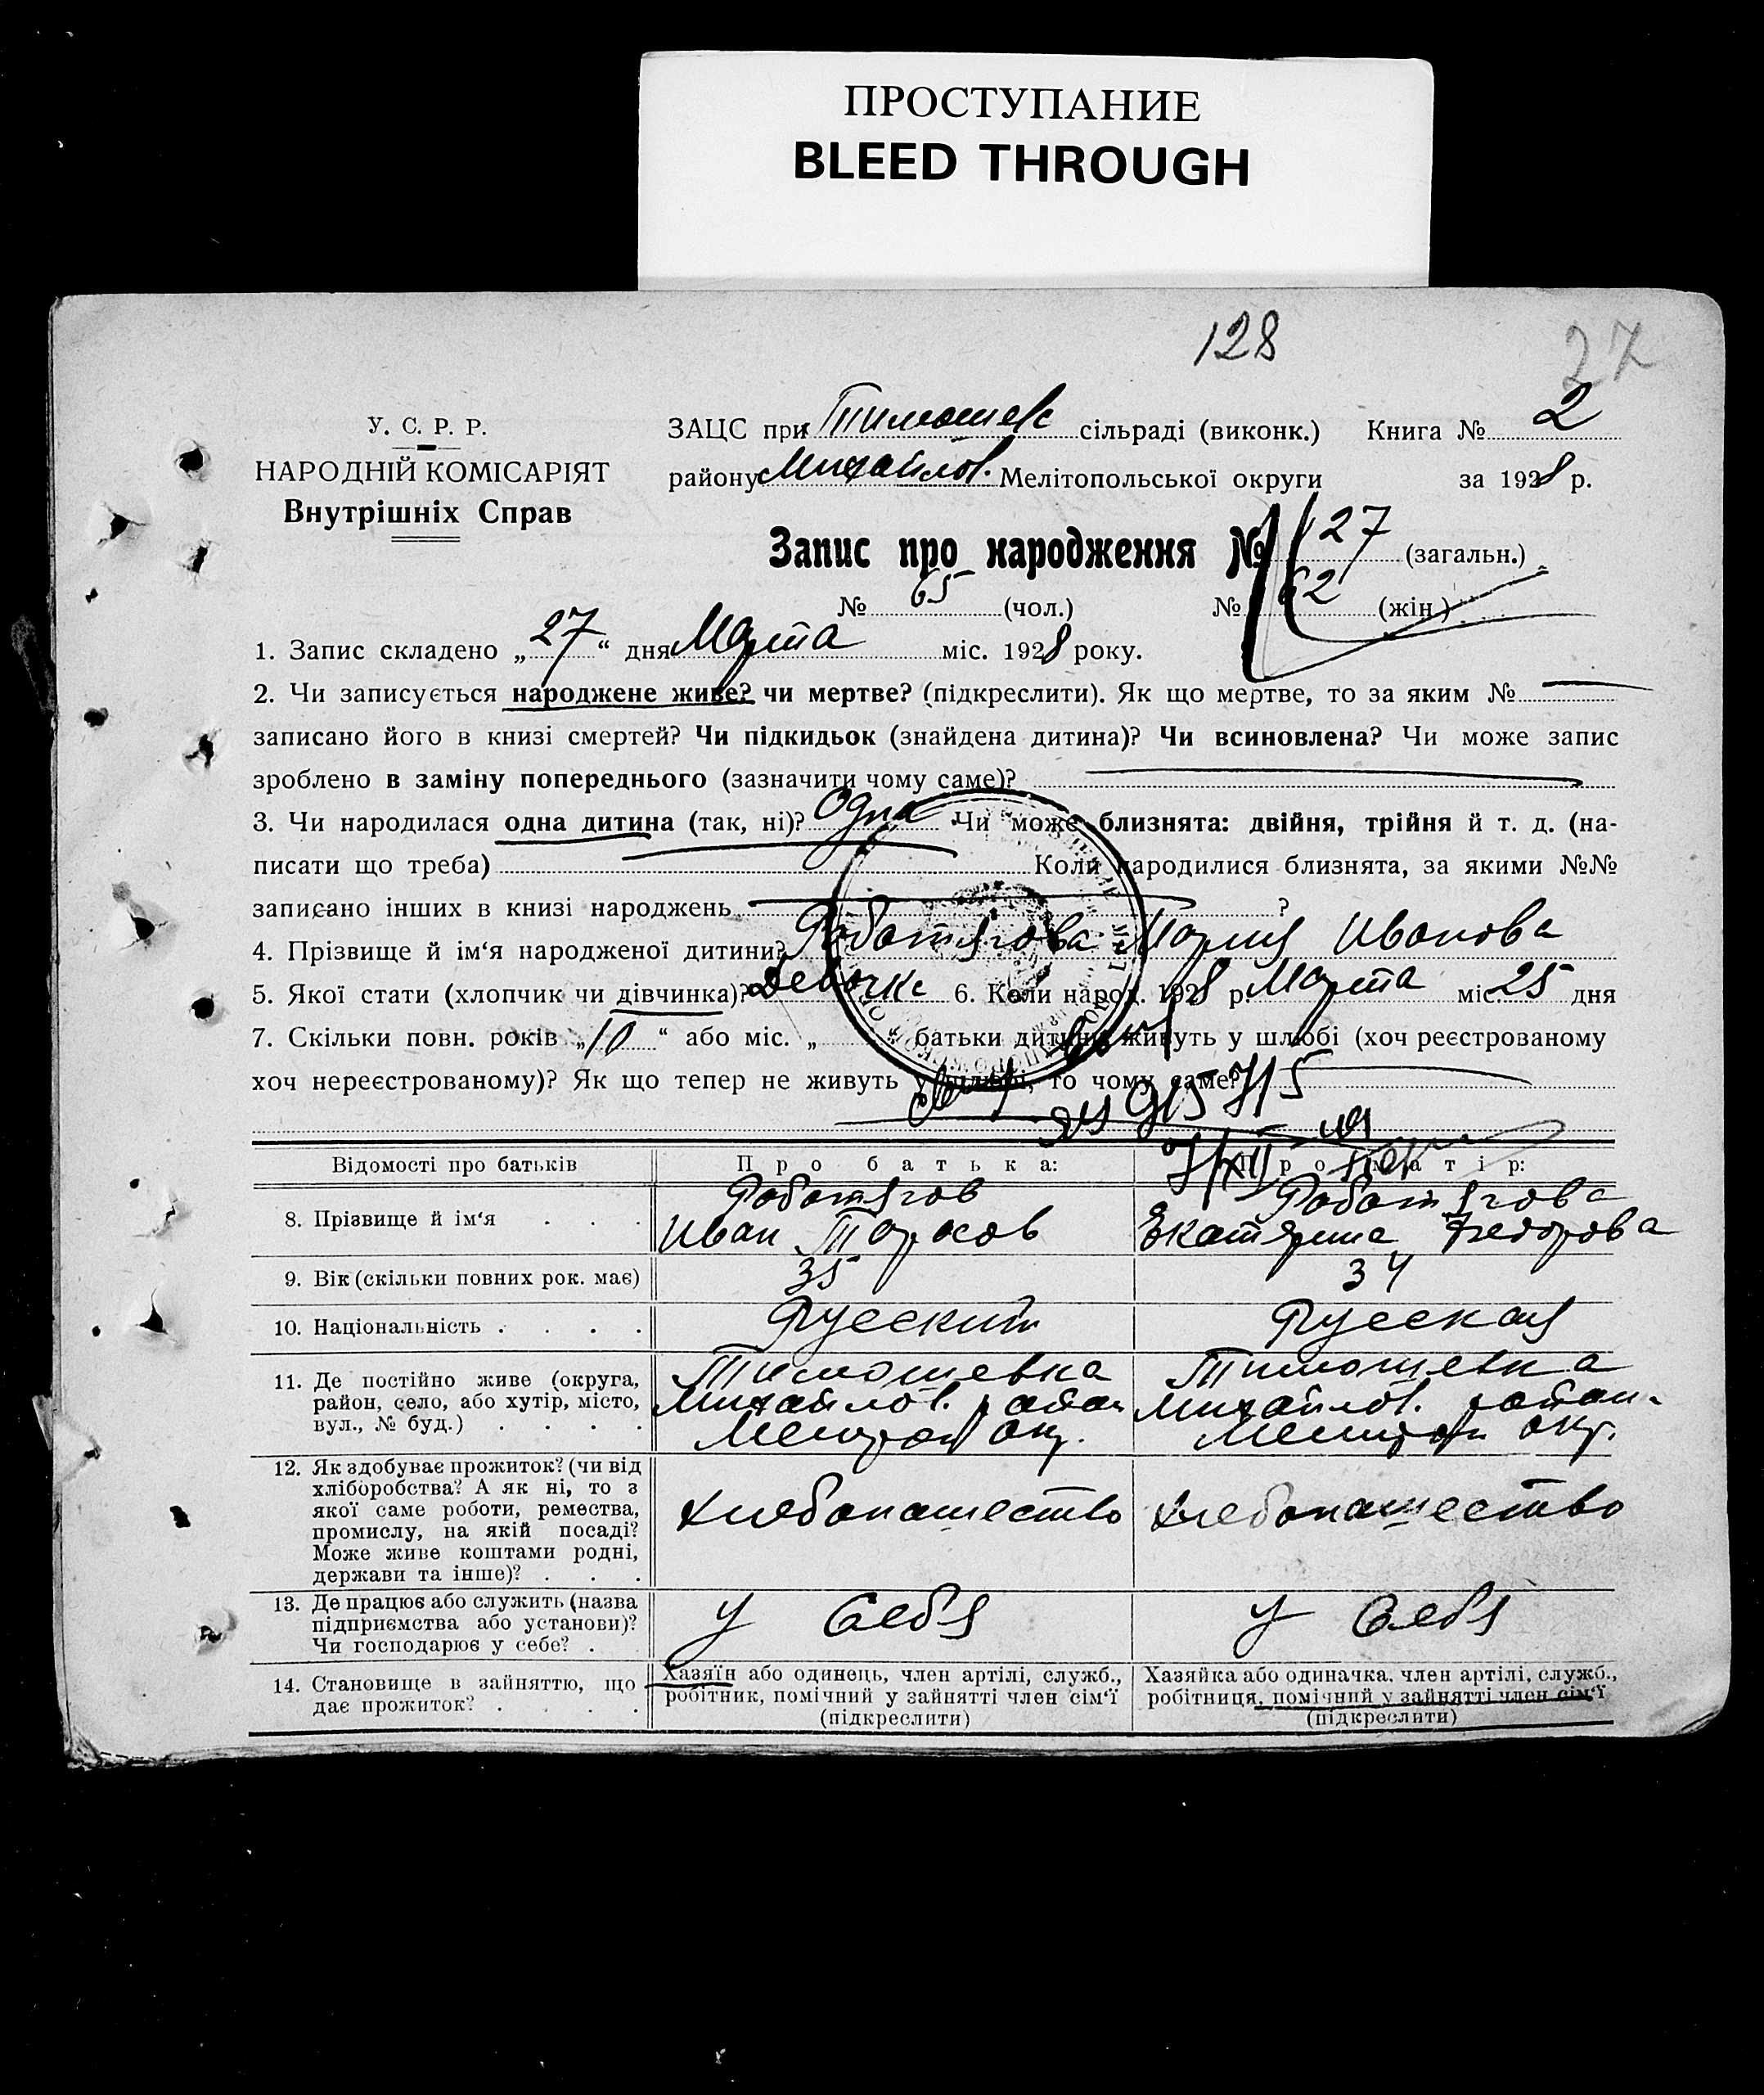 ПРОСТУПАНИЕ
BLEED THROUGH
128
27
У. С. Р. Р.
НАРОДНІЙ КОМІСАРІЯТ
Внутрішніх Справ
ЗАЦС при Тимошек сільраді (виконк.) Книга № 2
району Михайлов. Мелітопольської округи за 1928 р.
Запис про народження № 127 (загальн.)
№ 65 (чол.) № 62 (жін.)
1. Запис складено „27“ дня Марта міс. 1928 року.
2. Чи записується народжене живе? чи мертве? (підкреслити). Як що мертве, то за яким №
записано його в книзі смертей? Чи підкидьок (знайдена дитина)? Чи всиновлена? Чи може запис
зроблено в заміну попереднього (зазначити чому саме)?
3. Чи народилася одна дитина (так, ні)? Одна Чи може близнята: двійня, трійня й т. д. (на-
писати що треба) Коли народилися близнята, за якими №№
записано інших в книзі народжень ?
4. Прізвище й ім‘я народженої дитини? Работягова Мария Иванова
5. Якої стати (хлопчик чи дівчинка)? Девочка 6. Коли народ. 1928 р. Марта міс. 25 дня
7. Скільки повн. років „10“ або міс. „ “ батьки дитини живуть у шлюбі (хоч реєстрованому
хоч нереєстрованому)? Як що тепер не живуть у шлюбі, то чому саме?
Відомості про батьків Про батька: Про матір:
8. Прізвище й ім‘я . . .
Работягов
Иван Тарасов
Работягова
Екатярина Федорова
9. Вік (скільки повних рок. має) 35 34
10. Національність . . . . Русский Русская
11. Де постійно живе (округа,
район, село, або хутір, місто,
вул., № буд.) . . . .
Тимошевка
Михайлов. район
Мелитоп окр.
Тимошевка
Михайлов. район
Мелитоп окр.
12. Як здобуває прожиток? (чи від
хліборобства? А як ні, то з
якої саме роботи, ремества,
промислу, на якій посаді?
Може живе коштами родні,
держави та інше)? . . .
Хлебопашество Хлебопашество
13. Де працює або служить (назва
підприємства або установи)?
Чи господарює у себе? .
У Себя У Себя
14. Становище в зайняттю, що
дає прожиток? . . . .
Хазяїн або одинець, член артілі, служб.,
робітник, помічний у зайнятті член сім‘ї
(підкреслити)
Хазяйка або одиначка, член артілі, служб.,
робітниця, помічний у зайнятті член сім‘ї
(підкреслити)